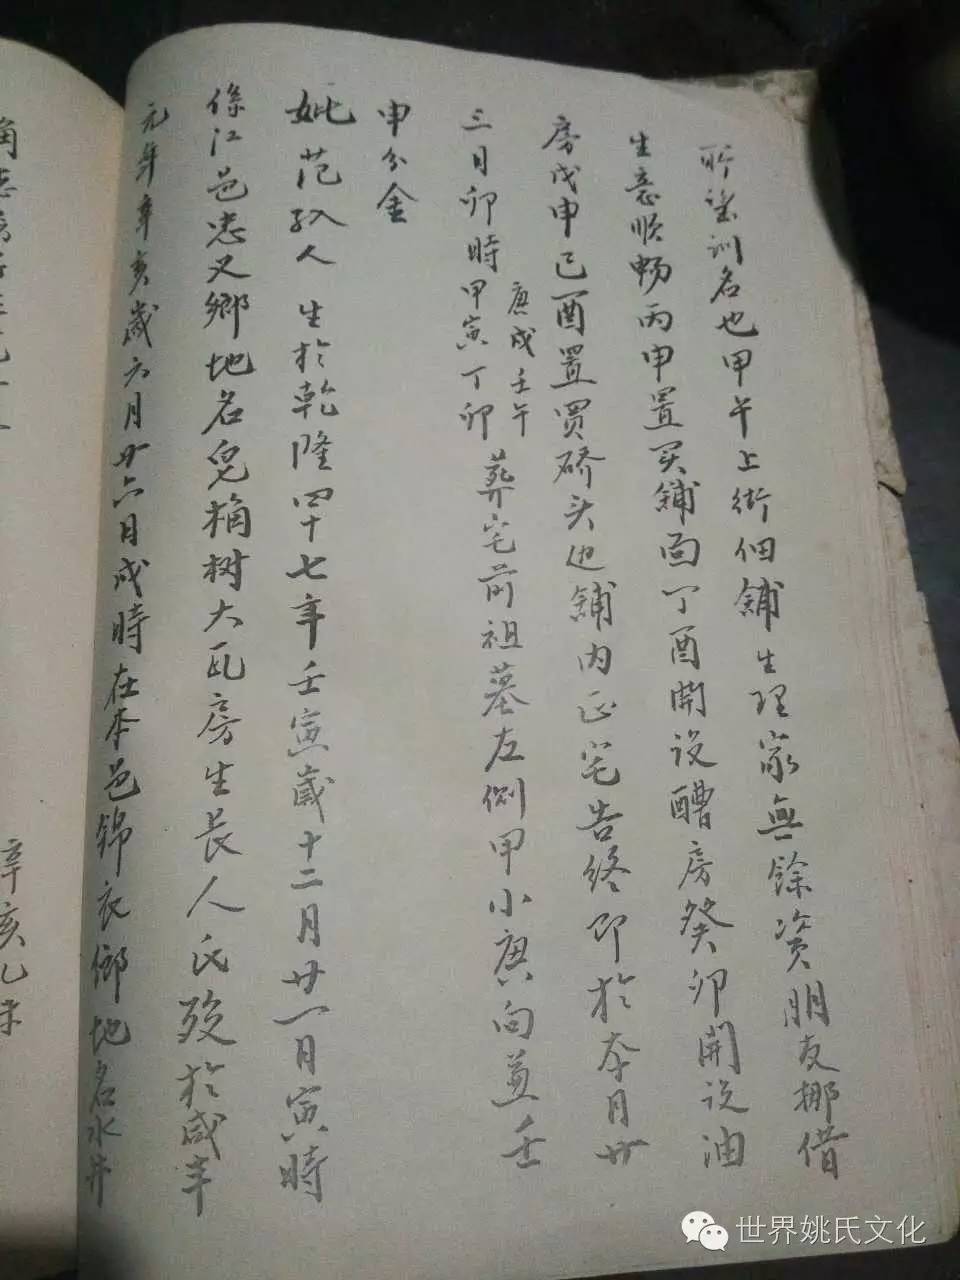 所塗训名也甲午上街佃鋪生理家無餘资朋友挪借
生意順畅丙申置买鋪面丁酉開设醩房癸卯開说油
房戊申己酉置買硚头边鋪内正宅告终即於本月廿
三日卯時甲寅丁卯 庚戌壬午 葬宅前祖墓左側甲小庚向兼壬
申分金
妣范孺人 生於乾隆四十七年壬寅歲十二月廿一日寅時
係江邑悉义鄉地名皂桷树大瓦房生長人氏殁於咸丰
元年辛亥歲六月廿六日戌時在本邑錦衣鄉地名水井
辛亥乙未
世界姚氏文化